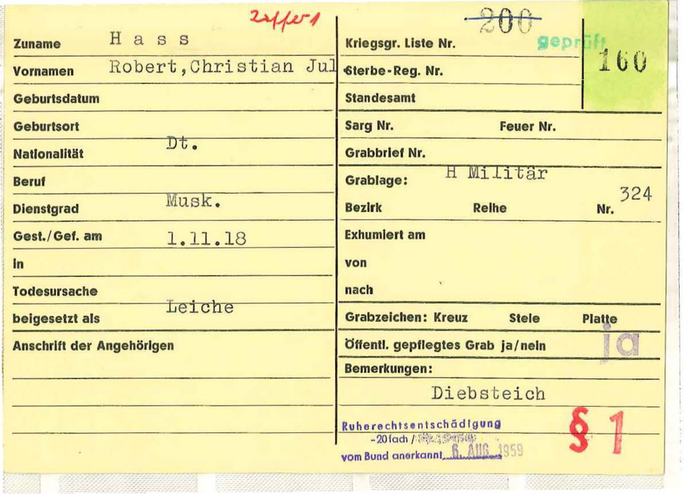 200
geprüft
160
Zuname Hass
Vornamen Robert,Christian Jul
Geburtsdatum
Geburtsort
Nationalität Dt.
Beruf
Dienstgrad Musk.
Gest./Gef. am 1.11.18
in
Todesursache
beigesetzt als Leiche
Anschrift der Angehörigen
Kriegsgr. Liste Nr.
Sterbe-Reg. Nr.
Standesamt
Sarg Nr. Feuer Nr.
Grabbrief Nr.
Grablage: H Militär
Bezirk Reihe Nr. 324
Exhumiert am
von
nach
Grabzeichen: Kreuz Stele Platte
Öffentl. gepflegtes Grab ja/nein ja
Bemerkungen:
Diebsteich
Ruherechtsentschädigung
-20fach /
vom Bund anerkannt 6. AUG. 1959
§ 1